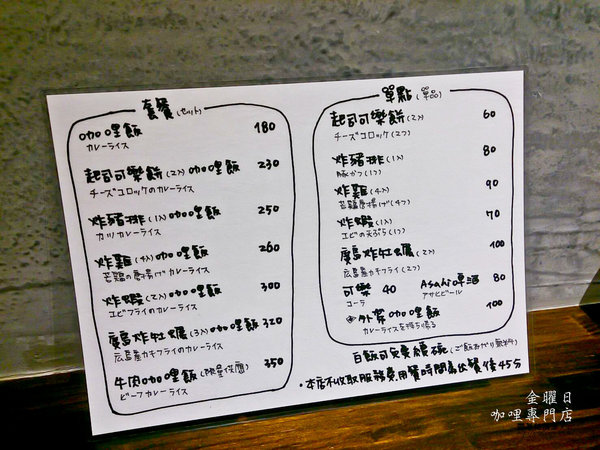 套餐(セット)
咖哩飯 180
カレーライス
起司可樂餅(2入)咖哩飯 230
チーズコロッケのカレーライス
炸豬排(1入)咖哩飯 250
カツカレーライス
炸雞(4入)咖哩飯 260
若鶏の唐揚げカレーライス
炸蝦(2入)咖哩飯 300
エビフライのカレーライス
廣島炸牡蠣(3入)咖哩飯 320
広島産カキフライのカレーライス
牛肉咖哩飯(限量供應) 350
ビーフカレーライス
單點(單品)
起司可樂餅(2入) 60
チーズコロッケ(2つ)
炸豬排(1入) 80
豚かつ(1つ)
炸雞(4入) 90
若鶏唐揚げ(4つ)
炸蝦(1入) 70
エビの天ぷら(1つ)
廣島炸牡蠣(2入) 100
広島産カキフライ(2つ)
可樂 40 Asahi啤酒 80
コーラ アサヒビール
外帶咖哩飯 100
カレーライスを持ち帰る
白飯可免費續碗(ご飯おかわり無料)
・本店不收取服務費用餐時間為出餐後45分
金曜日
咖哩專門店